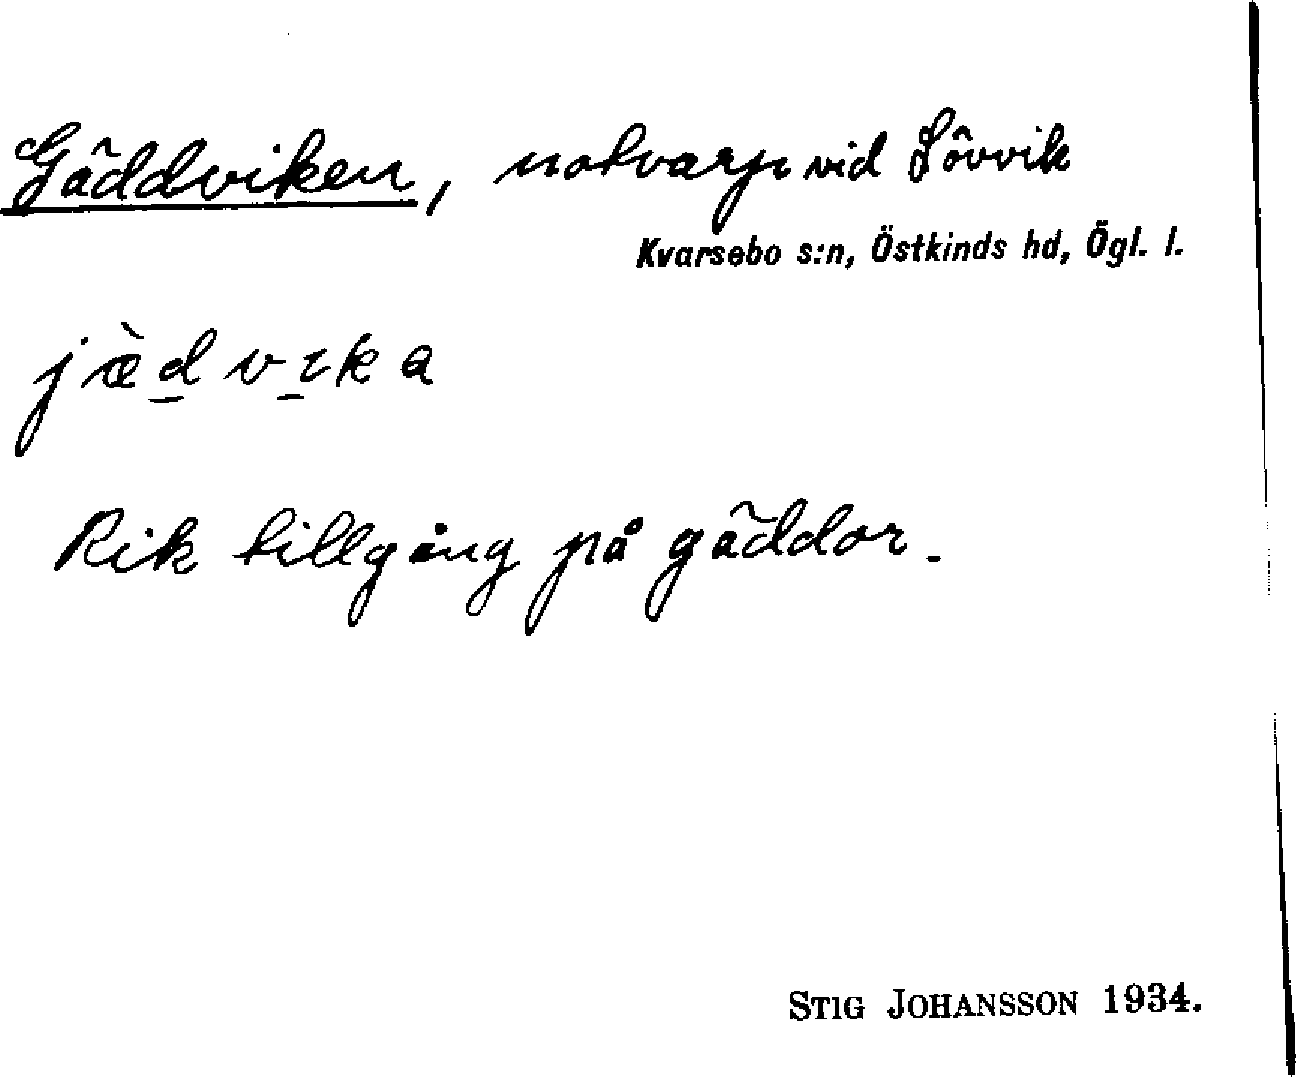 Gäddviken, notvarp vid Lövvik
Kvarsebo s:n, Östkinds hd, Ögl. l.
jæ̀d̲vi̲ka
Rik tillgång på gäddor.
STIG JOHANSSON 1934.